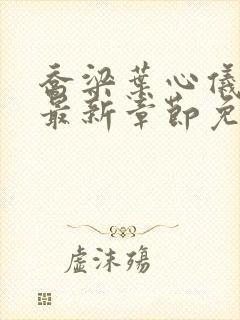 乔梁叶心仪
最新章节免
虚沫殇